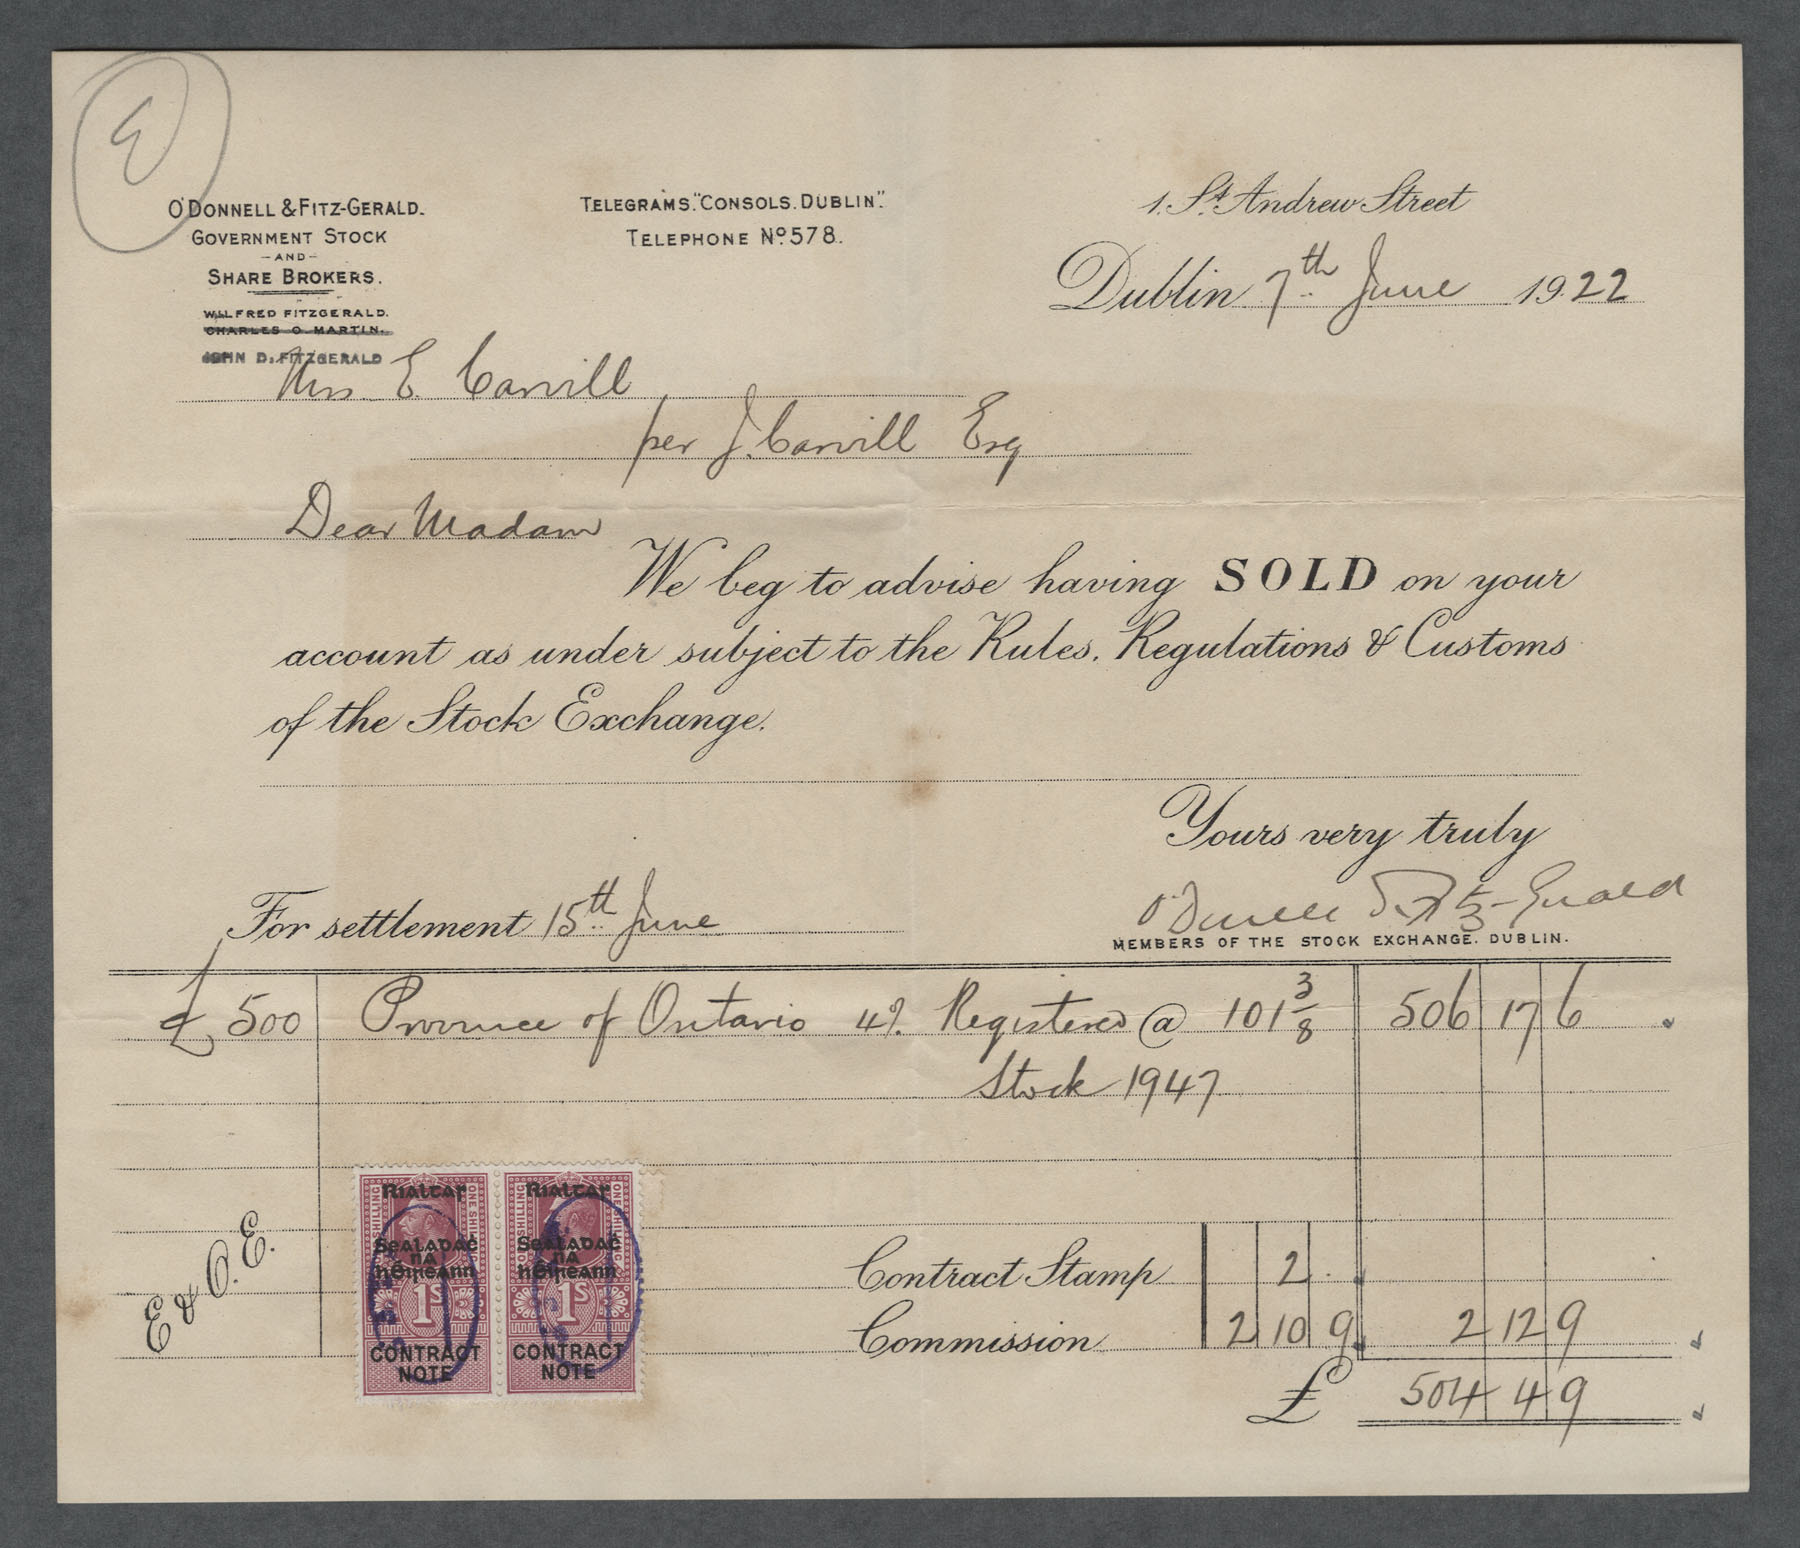 E
O'DONNELL & FITZ-GERALD.
GOVERNMENT STOCK
-AND-
SHARE BROKERS.
WILFRED FITZGERALD.
CHARLES O. MARTIN.
JOHN D. FITZGERALD
TELEGRAMS. "CONSOLS. DUBLIN".
TELEPHONE No. 578.
1. St. Andrew Street
Dublin 7th June 1922
Mrs E. Carvill
per J. Carvill Esq
Dear Madam
We beg to advise having SOLD on your
account as under subject to the Rules, Regulations & Customs
of the Stock Exchange.
Yours very truly
For settlement 15th June
O'Donnell & Fitz-Gerald
MEMBERS OF THE STOCK EXCHANGE. DUBLIN.
£ 500 Province of Ontario 4% Registered @ 101 3/8 506 17 6
Stock 1947
E & O. E.
Rialtas Rialtas
Sealadaċ Sealadaċ
na na
hÉireann hÉireann
ONE SHILLING ONE SHILLING
1S 1S
CONTRACT CONTRACT
NOTE NOTE
Contract Stamp 2 .
Commission 2 10 9 2 12 9
£ 504 4 9